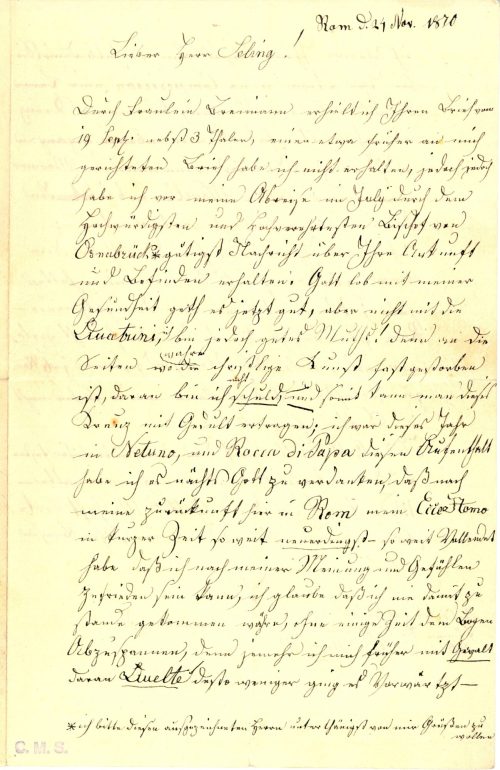 Rom d. 24 Nov. 1870
Lieber Herr Seling!
Durch Fraulein Bremann erhielt ich Ihren Brief vom
19 Sept: nebst 3 Thaler, einen etwa früher an mich
gerichteten Brief habe ich nicht erhalten, jedoch jedoch
habe ich vor meine Abreise im July durch dem
Hochwürdigsten und Hochverehrtesten Bischof von
Osnabrück* gütigst Nachricht über Ihre Ankunft
und Befinden erhalten. Gott lob mit meiner
Gesundheit geth es jetzt gut, aber nicht mit die
bin jedoch gutes Muths! denn an die
Zeiten wo die wahre christlige Kunst fast gestorben
ist, daran bin ich nicht schuld, und somit kann man dieses
Kreuz mit Gedult ertragen; ich war dieses Jahr
in Netuno, und Rocca di Papa diesen Aufenthalt
habe ich es nächts Gott zu verdanken, daß nach
meine zurückunft hier in Rom mein Ecce Homo
in kurzer Zeit so weit neuerdingst – so weit Vollendet
habe daß ich nach meiner Meinung und Gefühlen
zufrieden sein kann, ich glaube daß ich nie damit zu
stande gekommen währe, ohne einige Zeit den Bogen
Abzuspannen, denn jemehr ich mich früher mit Gewalt
daran desto weniger ging es Vorwärtzt –
*ich bitte diesen ausgezeichneten Herrn unterthänigst von mir Grüßen zu
wollen
C. M. S.